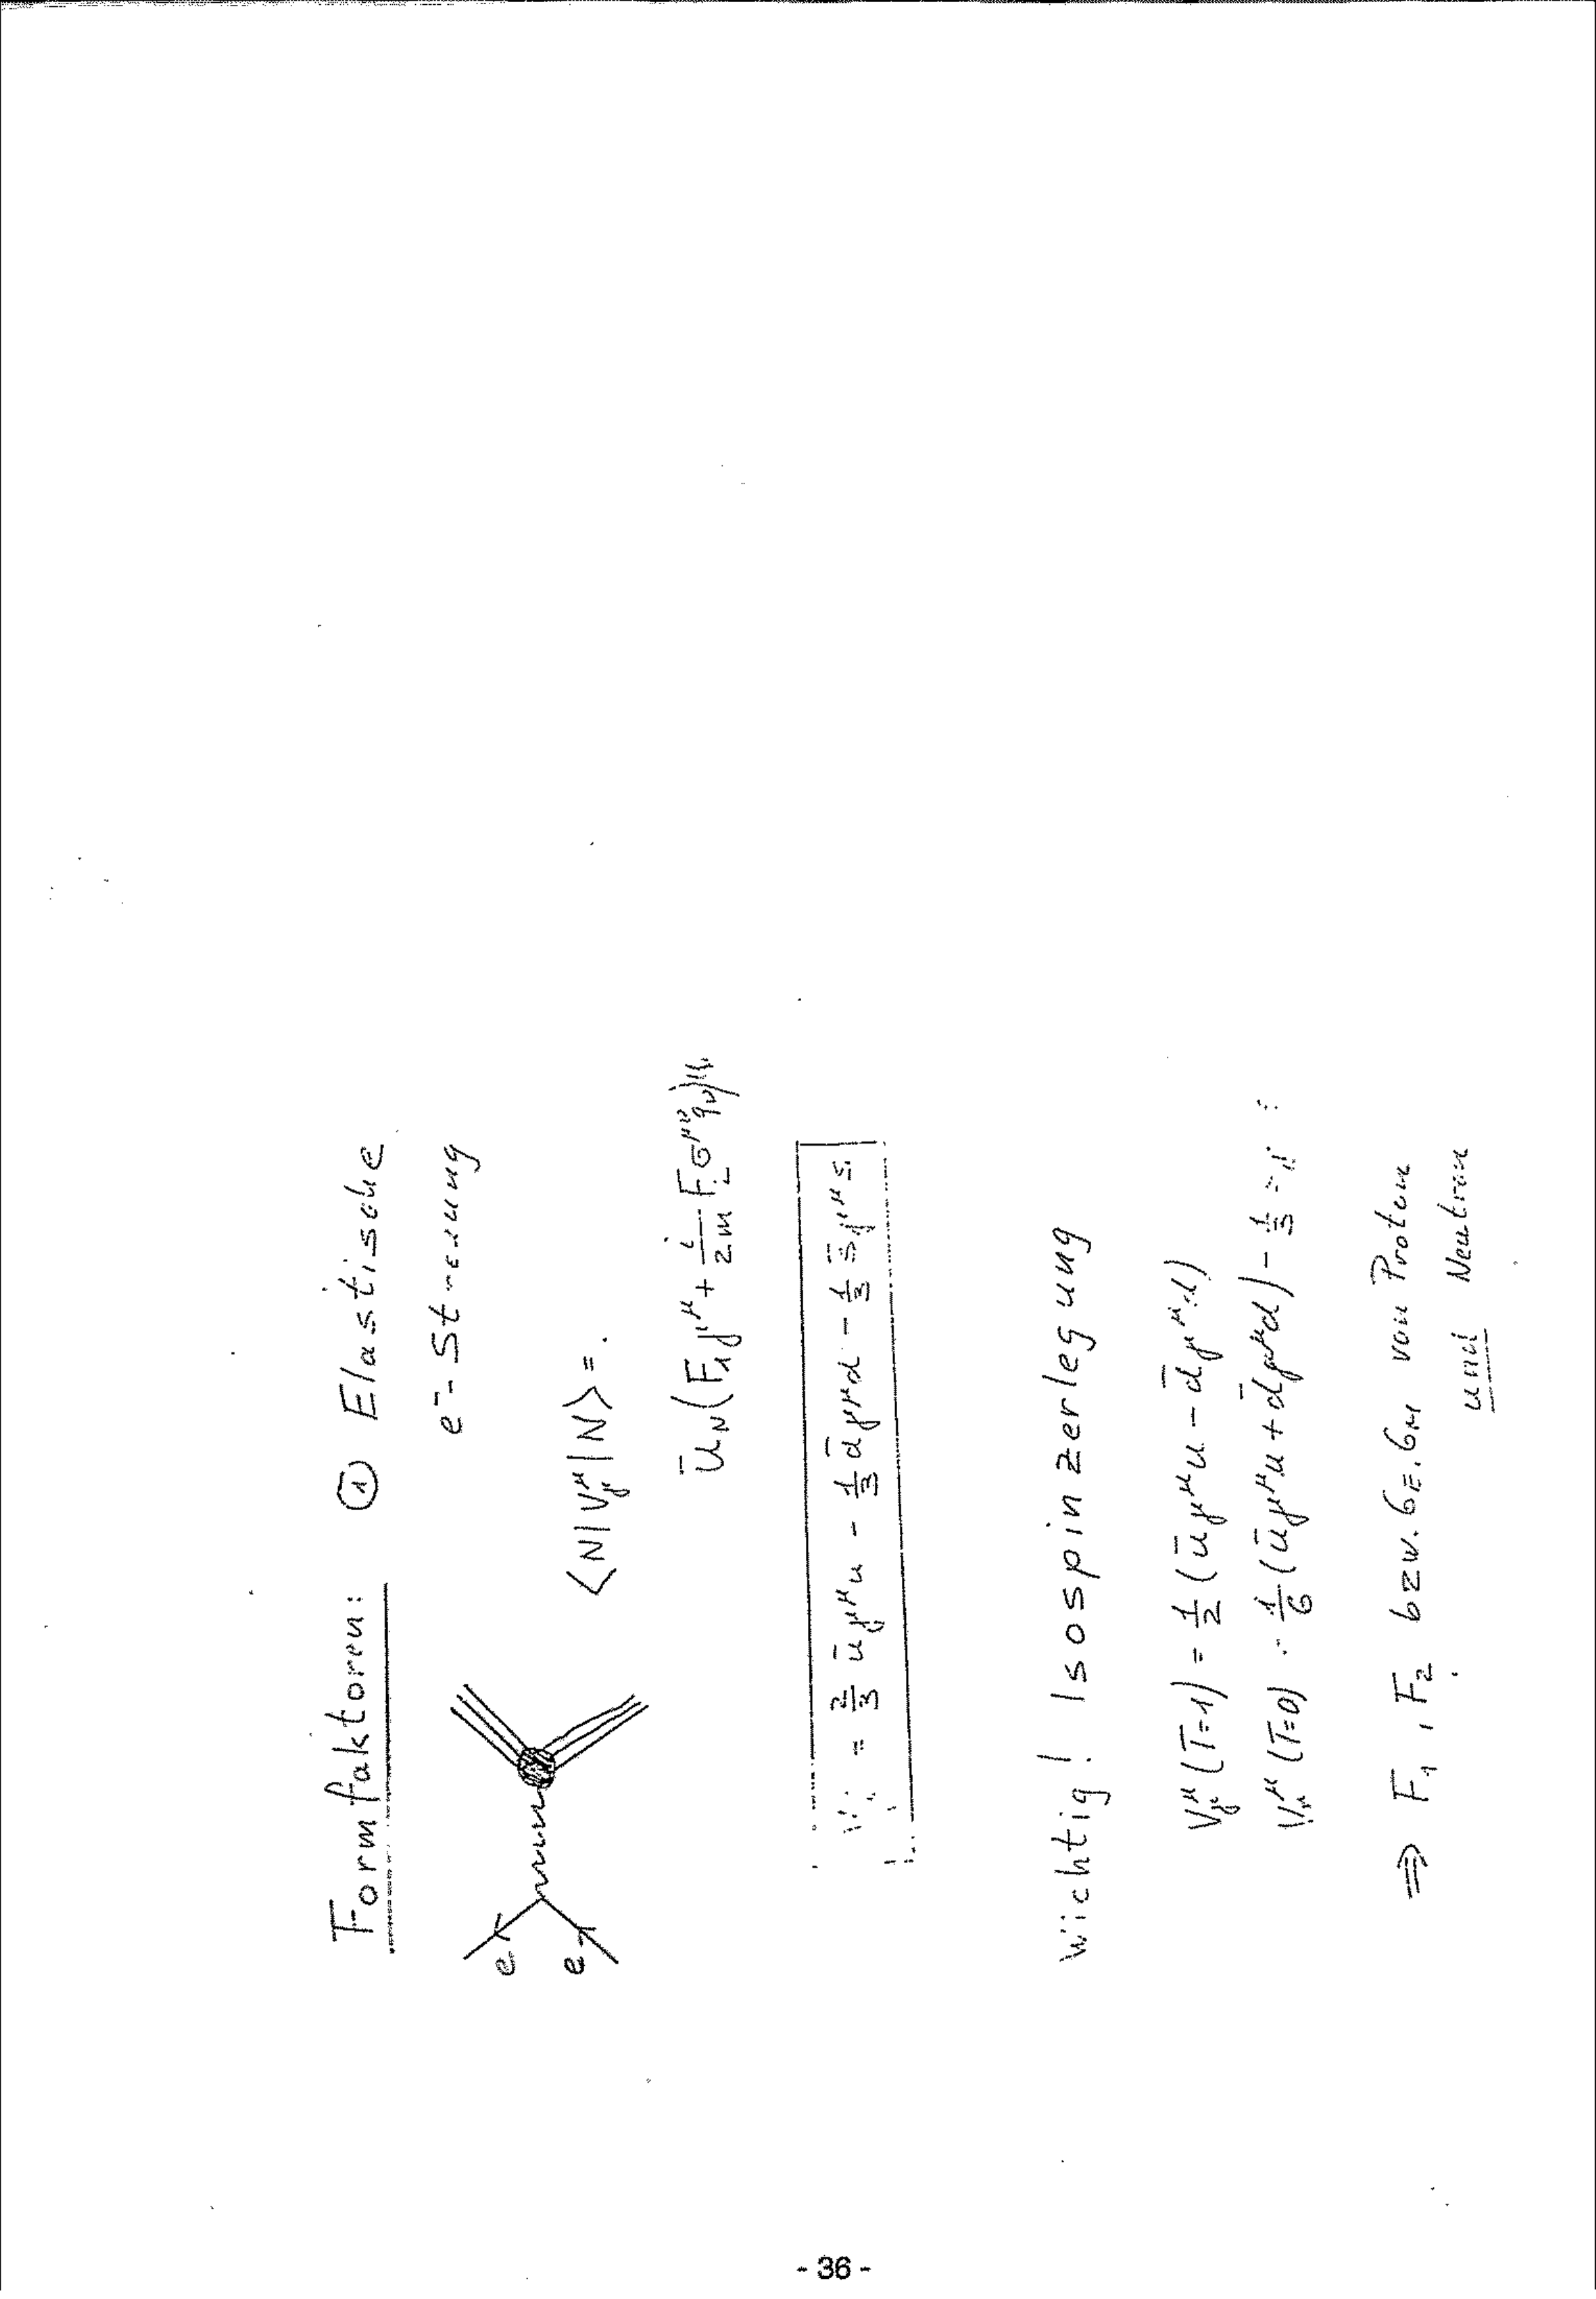 Formfaktoren: ① Elastische
e⁻-Streuung
e
e
⟨N|V_γ^μ|N⟩ =
ū_N(F₁γ^μ + i/2m F₂σ^μν q_ν)u
= 2/3 ūγ^μu - 1/3 d̄γ^μd - 1/3 s̄γ^μs
Wichtig! Isospinzerlegung
V_γ^μ(T=1) = 1/2(ūγ^μu - d̄γ^μd)
V_γ^μ(T=0) = 1/6(ūγ^μu + d̄γ^μd) - 1/3
⇒ F₁, F₂ bzw. G_E, G_M von Proton
und Neutron
- 36 -